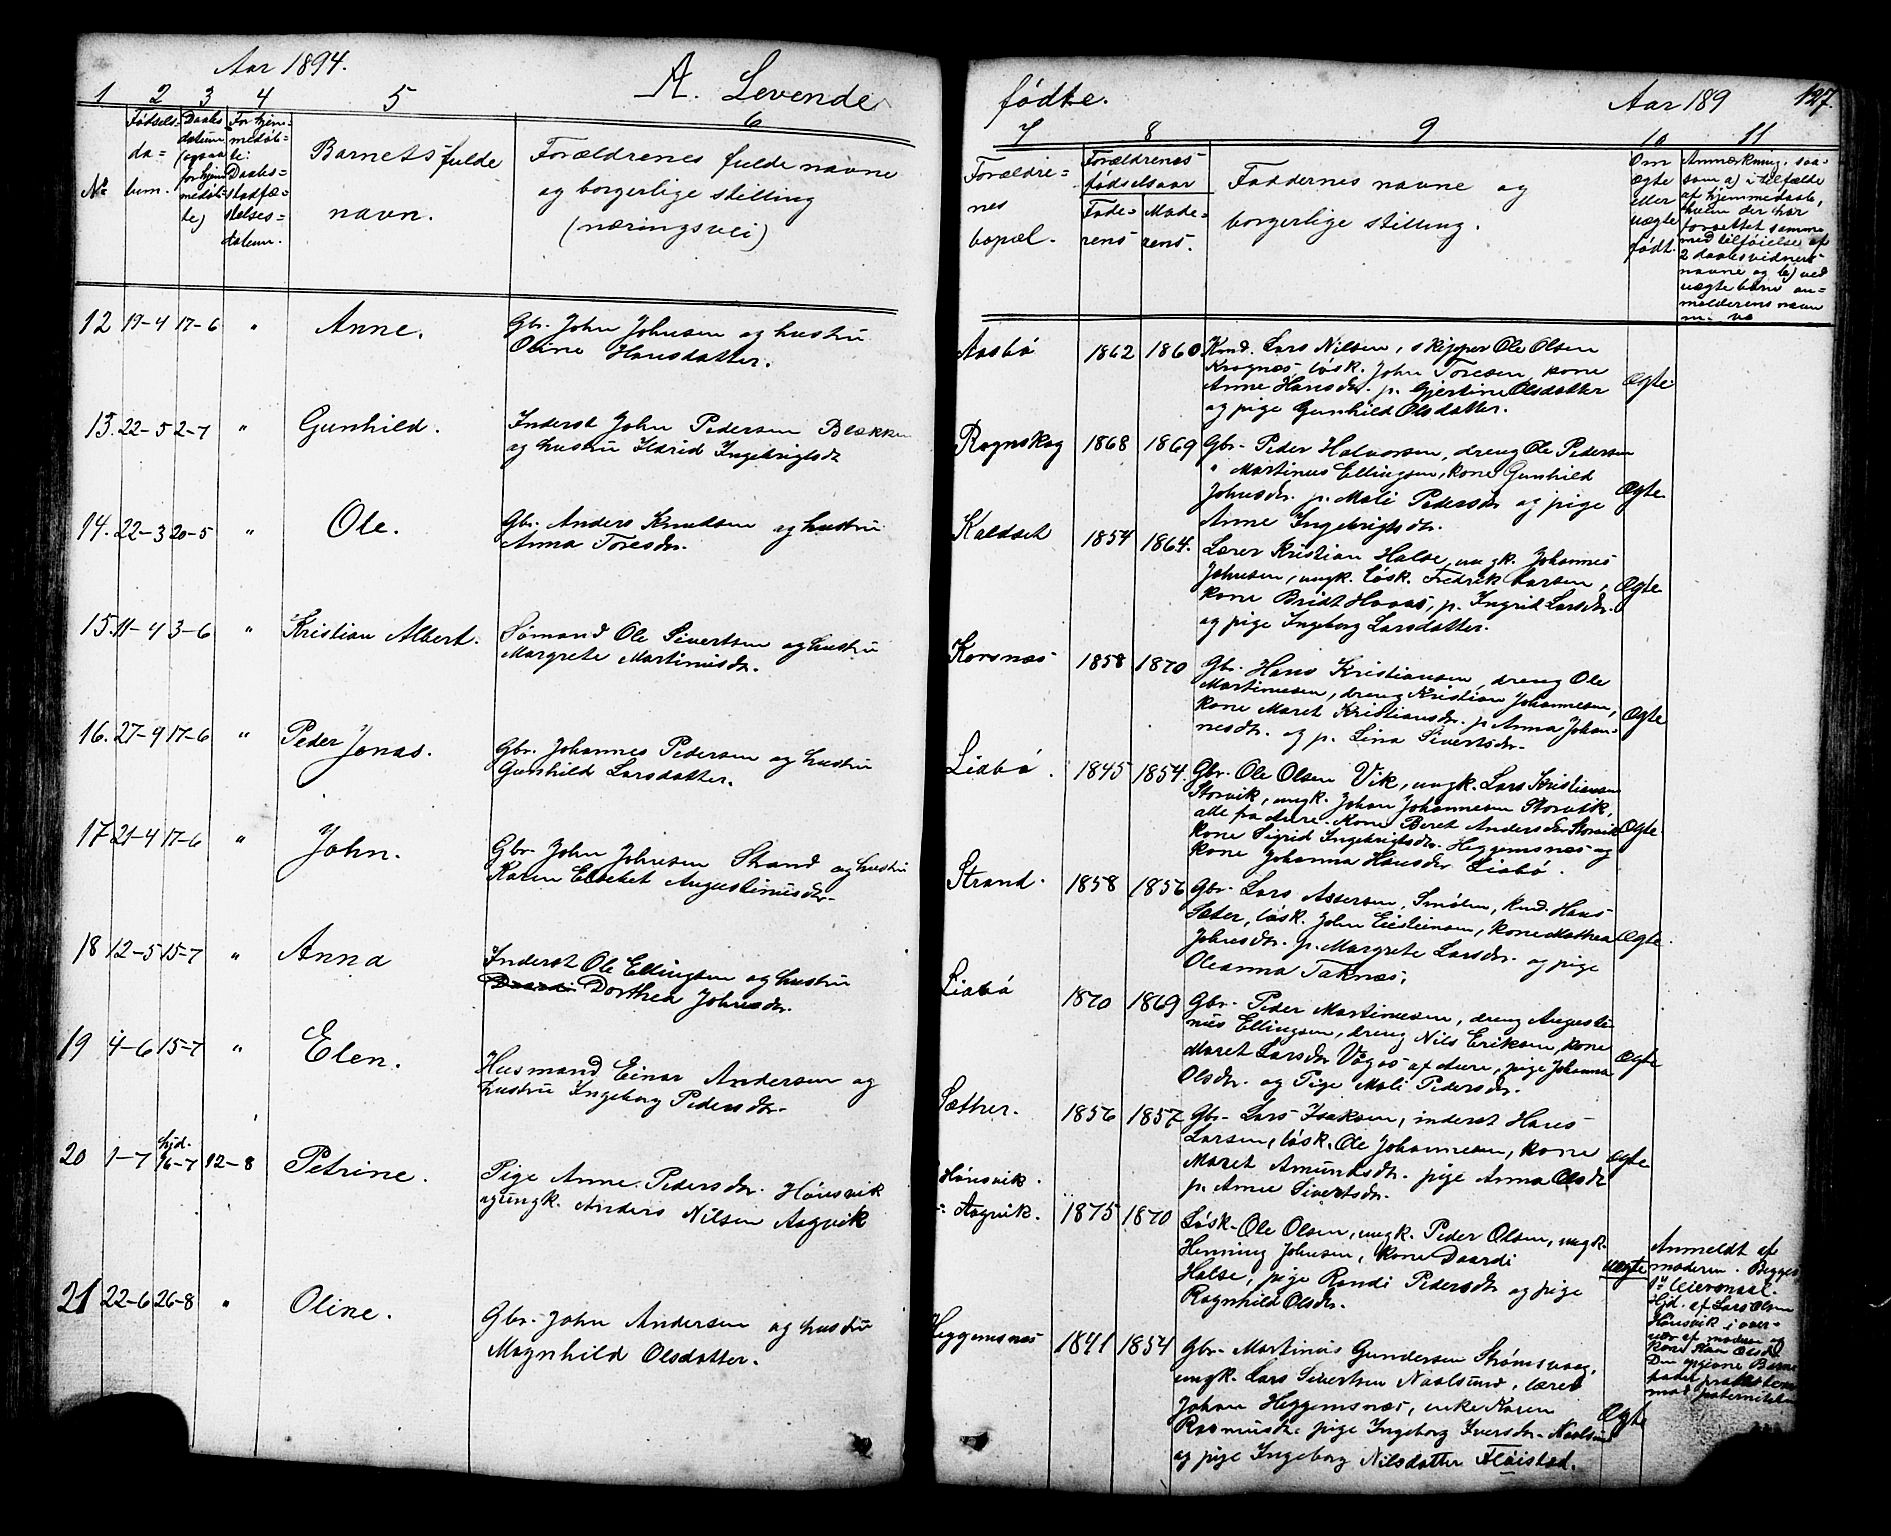 Aar 1894.
A. Levende
1 2 3 4 5 6
No
Fødsels-
da-
tum.
Daabs
datum
(ogsaa
for hjem
medøb-
te)
For hjem-
medøb-
te:
Daabs-
stadfæ-
stelses-
datum.
Barnets fulde
navn.
Forældrenes fulde navne
og borgerlige stilling
(næringsvei)
12 19-4 17-6 " Anne.
Gbr. John Johnsen og hustru
Oline Hansdatter.
13. 22-5 2-7 " Gunhild.
Inderst John Pedersen Blækken
og hustru Ildrid Ingebrigtsdr
14. 22-3 20-5 " Ole.
Gbr. Anders Knudsen og hustru
Anna Toresdr.
15. 11-4 3-6 " Kristian Albert.
Sømand Ole Sivertsen og hustru
Margrete Martinusdr.
16. 27-4 17-6 " Peder Jonas.
Gbr. Johannes Pedersen og hustru
Gunhild Larsdatter.
17 21-4 17-6 " John.
Gbr. John Johnsen Strand og hustru
Karen Elsebet Augustinusdr.
18 12-5 15-7 " Anna
Inderst Ole Ellingsen og hustru
Dorthea Johnsdr.
19 4-6 15-7 " Elen.
Husmand Einar Andersen og
hustru Ingeborg Pedersdr.
20 1-7 hjd. 16-7 12-8 Petrine.
Pige Anne Pedersdr. Hønsvik
og ungk. Anders Nilsen Aagvik
21 22-6 26-8 " Oline.
Gbr. John Andersen og hustru
Magnhild Olsdatter.
fødte.
Aar 189
127.
7 8 9 10 11
Forældre-
nes
bopæl.
Forældrenes
fødselsaar
Fade-
rens
Mode-
rens.
Faddernes navne og
borgerlige stilling.
Om
ægte
eller
uægte
født.
Anmærkning, saa-
som a) i tilfælde
af hjemmedaab,
hvem der har
forrettet samme
med tilføielse af
2 daabsvidners
navne og b) ved
uægte børn an-
melderens navn
m. v.
Aasbø 1862 1860 Knd. Lars Nilsen, skipper Ole Olsen
Kragnes løsk. John Toresen, kone
Anne Hansdr. p. Gjertine Olsdatter
og pige Gunhild Olsdatter.
Ægte
Rognskog 1868 1869 Gbr. Peder Halvorsen, dreng Ole Pedersen
" Martinus Ellingsen, kone Gunhild
Johnsdr. p. Mali Pedersdr og pige
Anne Ingebrigtsdr.
Ægte
Kaldset 1854 1864. Lærer Kristian Halse, ungk. Johannes
Johnsen, ungk. løsk. Fredrik Larsen,
kone Bridt Havas, p. Ingrid Larsdr.
og pige Ingeborg Larsdatter.
Ægte
Korsnæs 1858 1870 Gbr. Hans Kristiansen, dreng Ole
Martinusen, dreng Kristian Johannesen,
kone Maret Kristiansdr. p Anna Johan-
nesdr. og p. Lina Sivertsdr.
Ægte
Liabø. 1845 1854. Gbr. Ole Olsen Vik, ungk. Lars Kristiansen
Storvik, ungk. Johan Johannesen Storvik,
alle fra Aure. Kone Beret Andersdr Storvik
kone Sigrid Ingebrigtsdr. Heggemsnæs og
kone Johanna Hansdr Liabø.
Ægte
Strand. 1858 1856 Gbr. Lars Assersen, Smølen, knd. Hans
Sæter, løsk. John Eistensen, kone Mathea
Johnsdr. p. Margrete Larsdr. og pige
Oleanna Taknæs.
Ægte
Liabø 1870 1869 Gbr. Peder Martinusen, dreng Augusti-
nus Ellingsen, dreng Nils Eriksen, kone
Maret Larsdr Vågos af Aure, pige Johanna
Olsdr. og Pige Mali Pedersdr.
Ægte
Sæther. 1856 1857 Gbr. Lars Isaksen, inderst Hans
Larsen, løsk. Ole Johannesen, kone
Maret Amundsdr. pige Anna Olsdr
p. Anne Sivertsdr.
Ægte
Hønsvik.
Aagvik. 1875 1870 Løsk. Ole Olsen, ungk. Peder Olsen, ungk.
Henning Johnsen, kone Daardi
Halse, pige Randi Pedersdr og pige
Ragnhild Olsdr.
uægte
Anmeldt af
moderen. Begges
1ste leiermaal.
Hjd. af Lars Olsen
Hønsvik i over-
vær af moderen og
kone Kari Olsdr.
Den opgivne Barne
fader
med paterniteten
Heggemsnæs 1841 1854 Gbr. Martinus Gundersen Strømsvaag,
ungk. Lars Sivertsen Naalsund, lærer
Johan Heggemsnæs, enke Karen
Rasmusdr. pige Ingeborg Iversdr. Naalsund
og pige Ingeborg Nilsdatter Fløistad.
Ægte